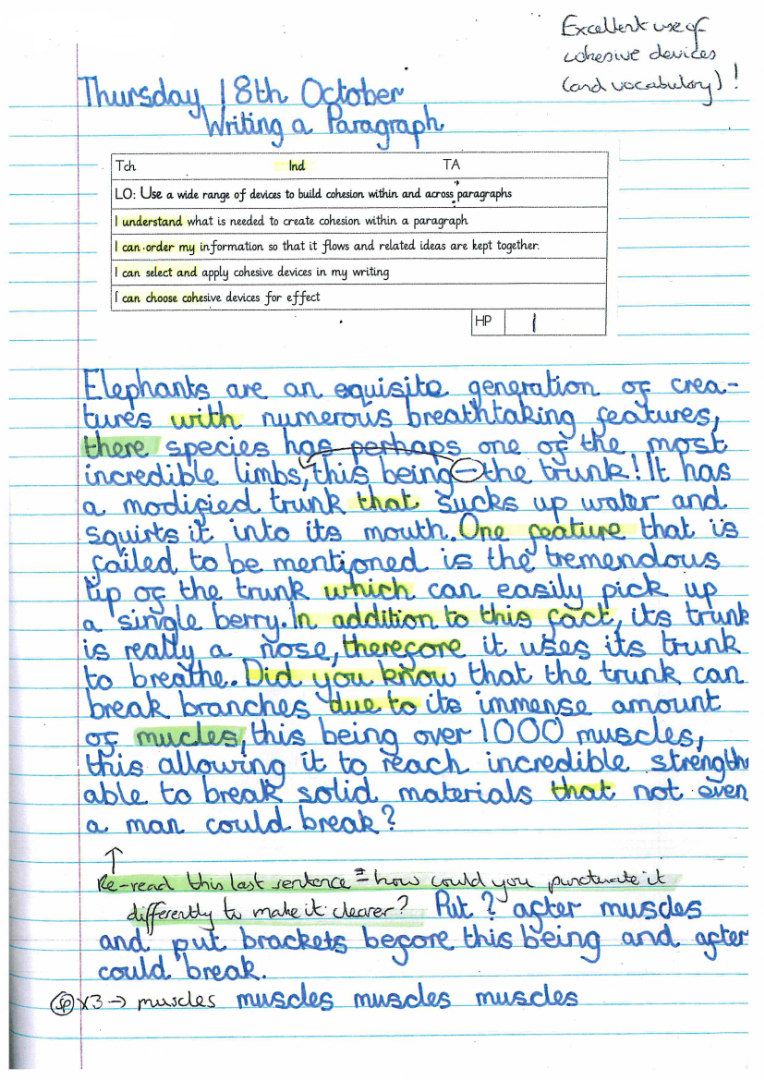 Excellent use of
cohesive devices
(and vocabulary)!
Thursday 18th October
Writing a Paragraph
Tch Ind TA
LO: Use a wide range of devices to build cohesion within and across paragraphs
I understand what is needed to create cohesion within a paragraph
I can order my information so that it flows and related ideas are kept together.
I can select and apply cohesive devices in my writing
I can choose cohesive devices for effect
HP 1
Elephants are an equisite generation of crea-
tures with numerous breathtaking features,
there species has perhaps one of the most
incredible limbs, this being - the trunk! It has
a modified trunk that sucks up water and
squirts it into its mouth. One feature that is
failed to be mentioned is the tremendous
tip of the trunk which can easily pick up
a single berry. In addition to this fact, its trunk
is really a nose, therefore it uses its trunk
to breathe. Did you know that the trunk can
break branches due to its immense amount
of mucles, this being over 1000 muscles,
this allowing it to reach incredible strength
able to break solid materials that not even
a man could break?
Re-read this last sentence - how could you punctuate it
differently to make it clearer? Put ? after muscles
and put brackets before this being and after
could break.
sp x3 → muscles muscles muscles muscles